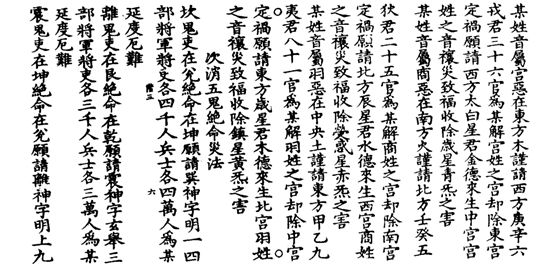 某姓音屬宮惡在東方木謹請西方庚辛六
戎君三十六官為某解宮姓之宮却除東宮
定禍願請西方太白星君金德來生定宮宮
姓之音禳災致福收除歲星青炁之害
某姓音屬商惡在南方火謹請北方壬癸五
狄君二十五官為某解商姓之宮却除南宮
定禍願請北方辰星君水德來生西宮商姓
之音禳災致福收除熒惑星赤炁之害
某姓音屬羽惡在中央土謹請東方甲乙九
夷君八十一官為某解羽姓之宮却除中宮
定禍願請東方歲星君木德來生北宮羽姓
之音禳災致福收除鎮星黃炁之害
次消五鬼絕命災法
坎鬼吏在兌絕命在坤願請巽神字明一四
部將軍將吏各四千人兵士各四萬人為某
階三 六
延度厄難
離鬼吏在艮絕命在乾願請震神字玄舉三
部將軍將吏各三千人兵士各三萬人為某
延度厄難
震鬼吏在坤絕命在兌願請離神字明上九